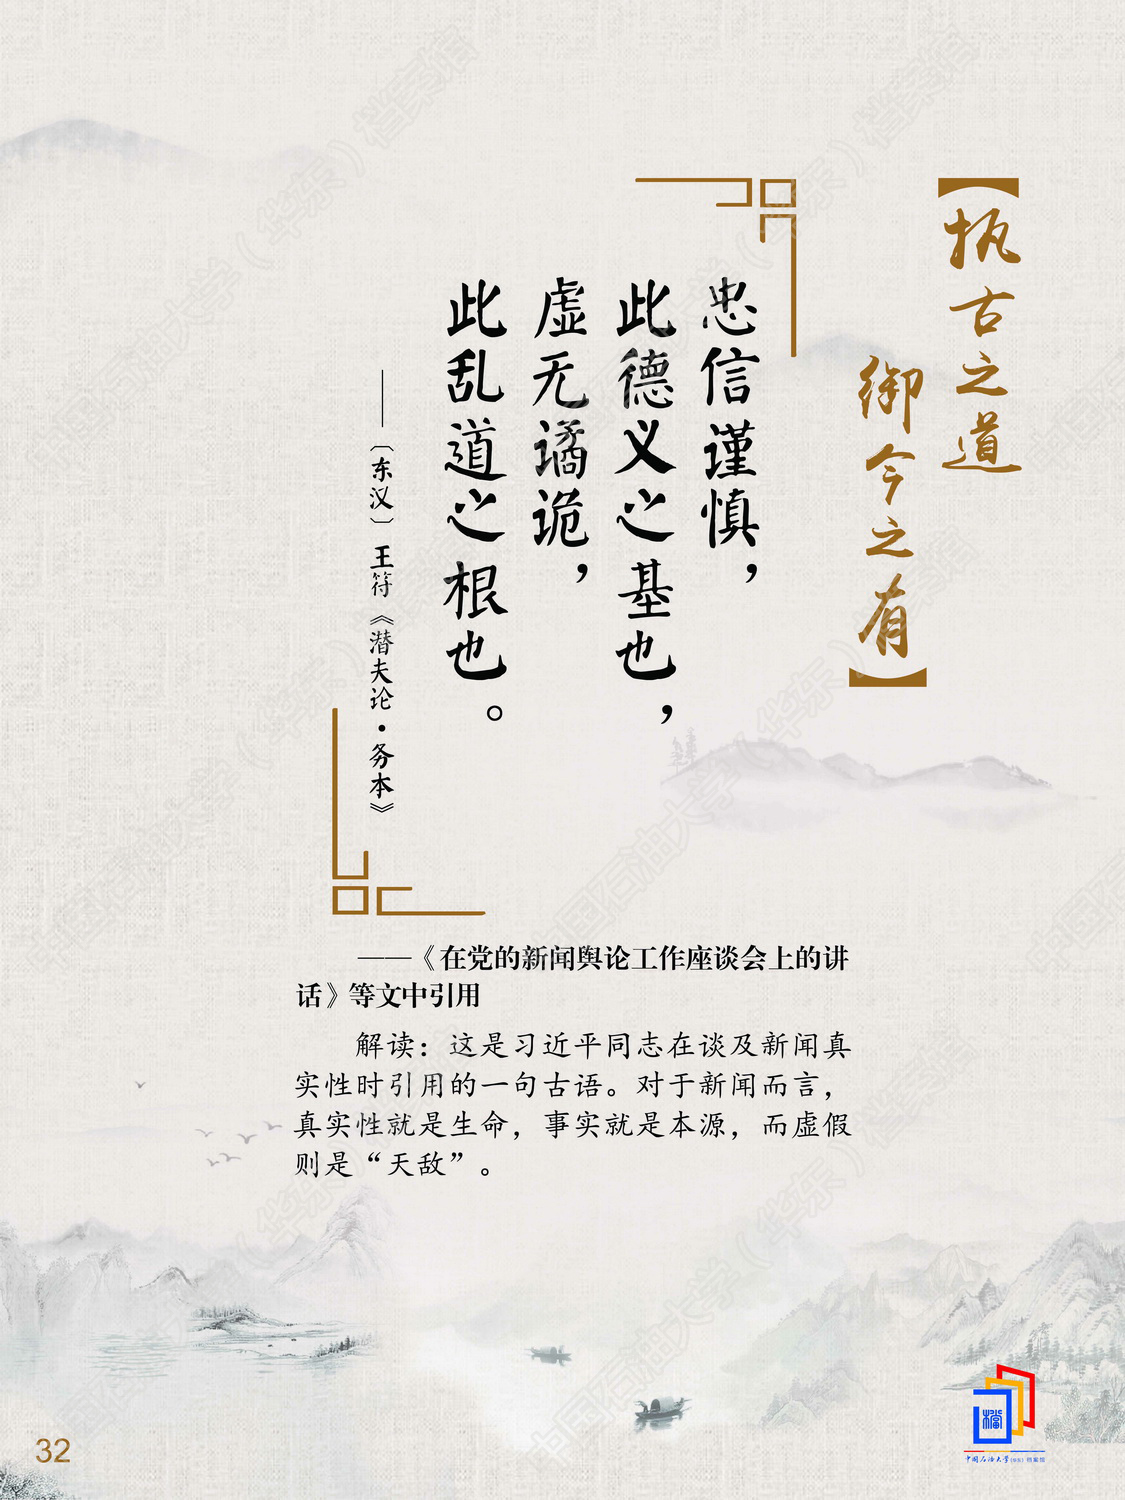 【执古之道
御今之有】
忠信谨慎，
此德义之基也，
虚无谲诡，
此乱道之根也。
——〔东汉〕王符《潜夫论·务本》
——《在党的新闻舆论工作座谈会上的讲
话》等文中引用
解读：这是习近平同志在谈及新闻真
实性时引用的一句古语。对于新闻而言，
真实性就是生命，事实就是本源，而虚假
则是“天敌”。
檔
中国石油大学(华东) 档案馆
32
中国石油大学（华东）档案馆